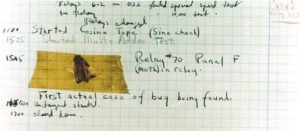 Relays 6-2 in 033 failed special speed test
in Relay
Relays changed
1100 Started Cosine Tape (Sine check)
1525 Started Multy Adder Test.
1545 Relay #70 Panel F
(moth) in relay.
First actual case of bug being found.
antangent started.
1700 closed down.